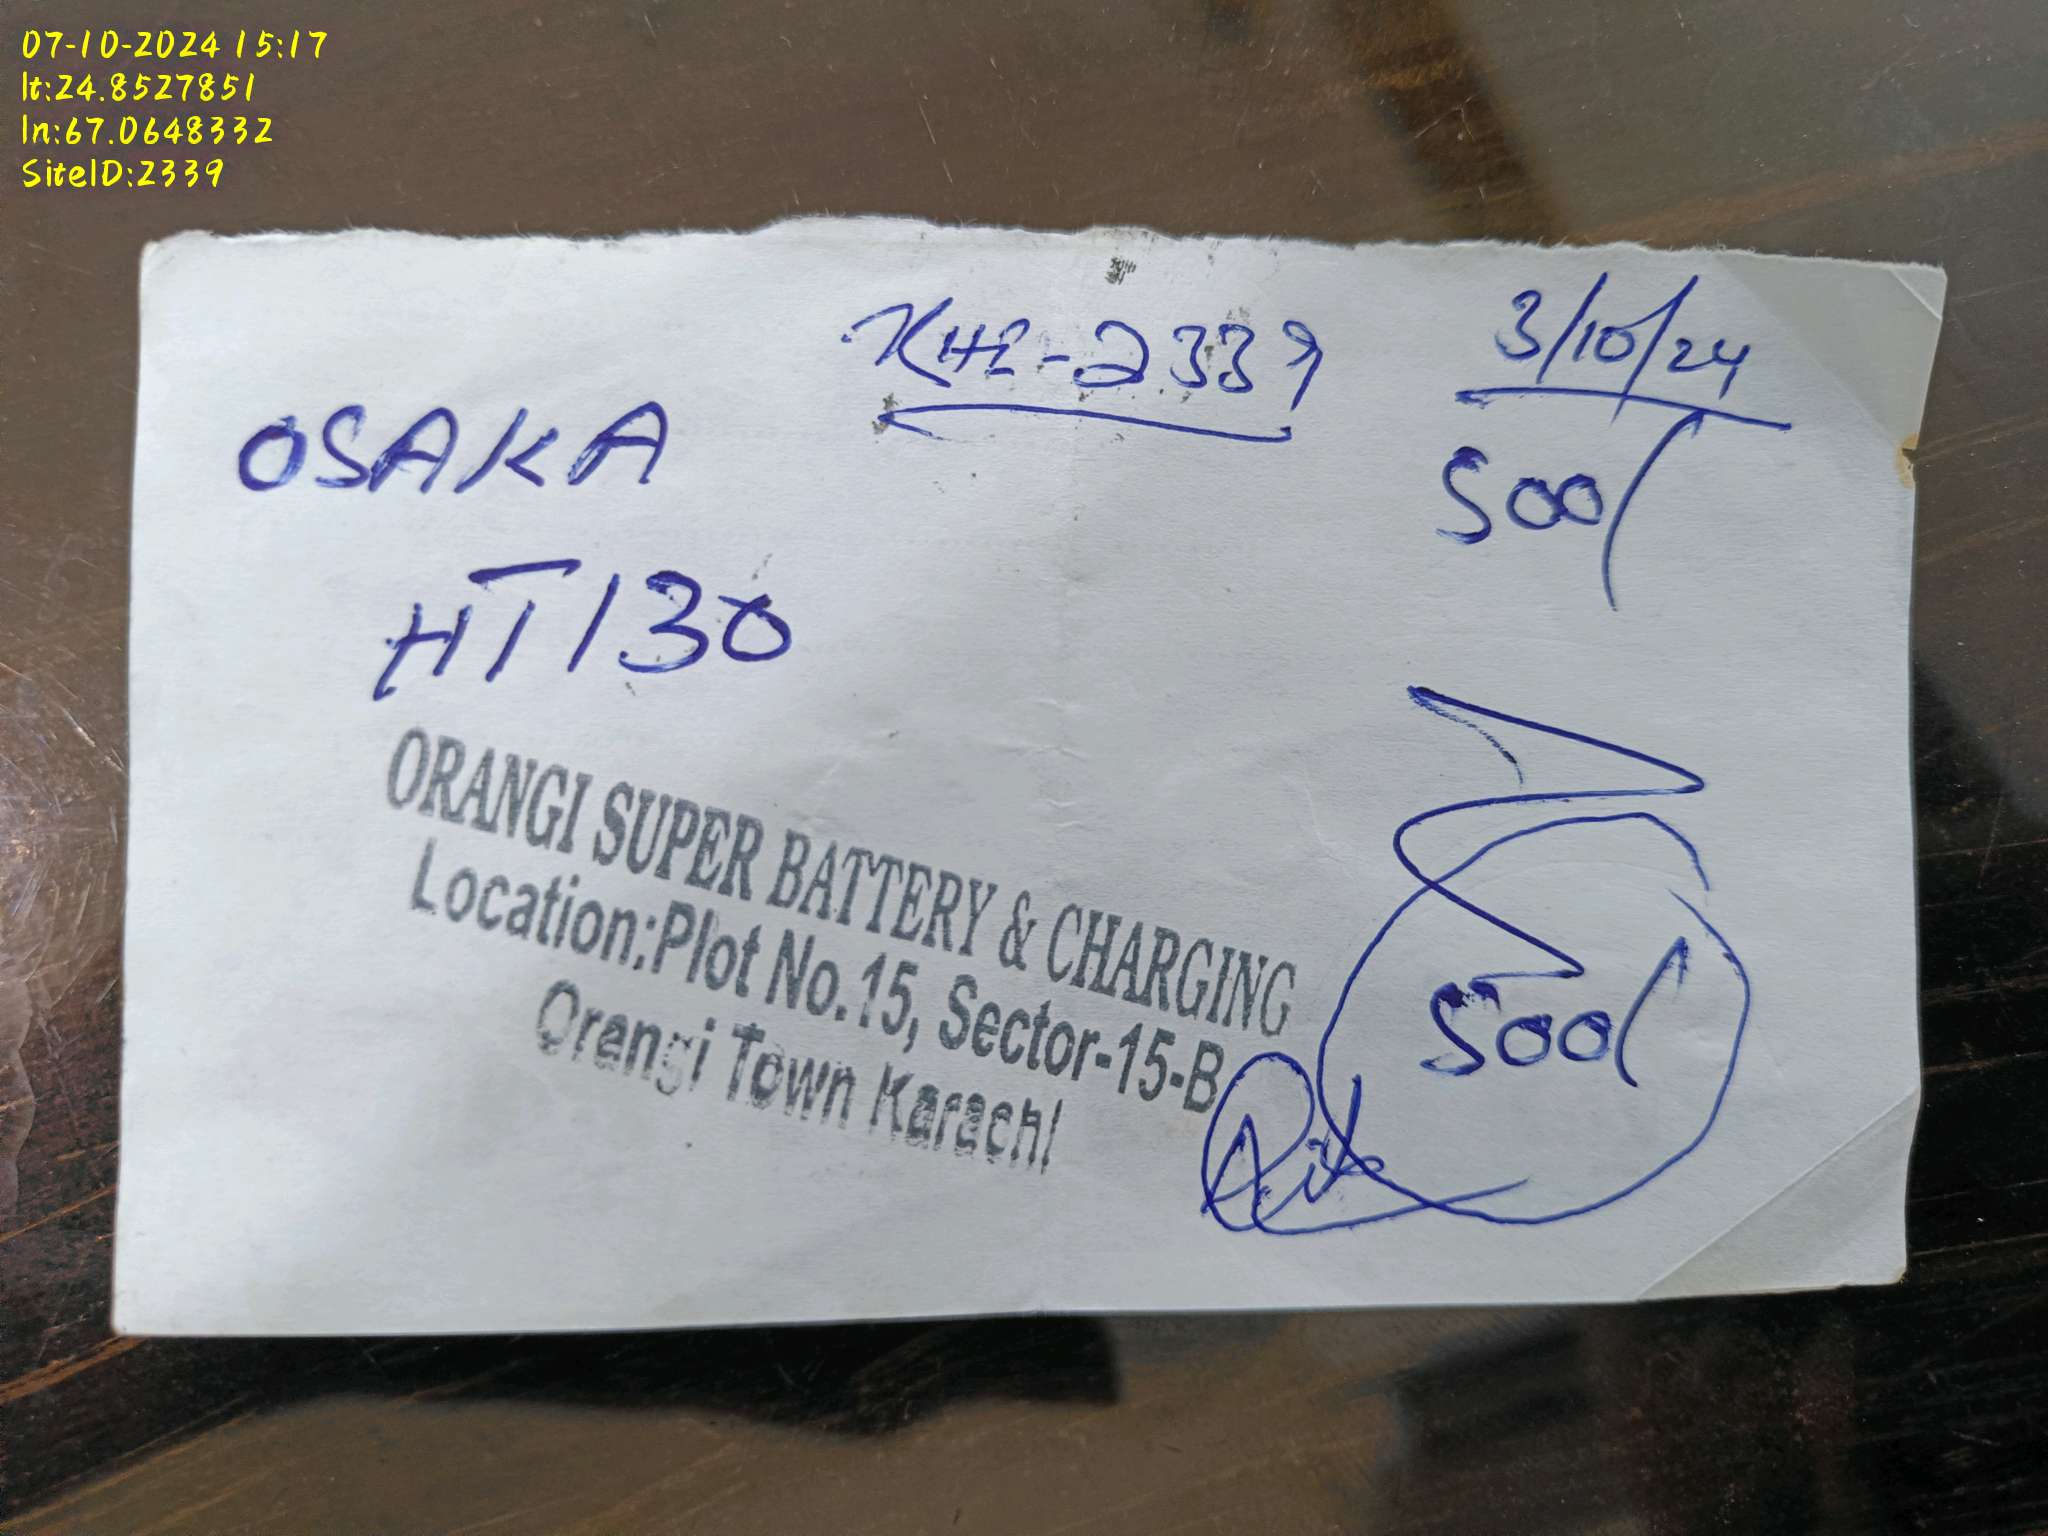 07-10-2024 15:17
lt:24.8527851
ln:67.0648332
SiteID:2339
KHI-2339
3/10/24
OSAKA
500/
HT130
ORANGI SUPER BATTERY & CHARGING
Location:Plot No.15, Sector-15-B
Orangi Town Karachi
500/